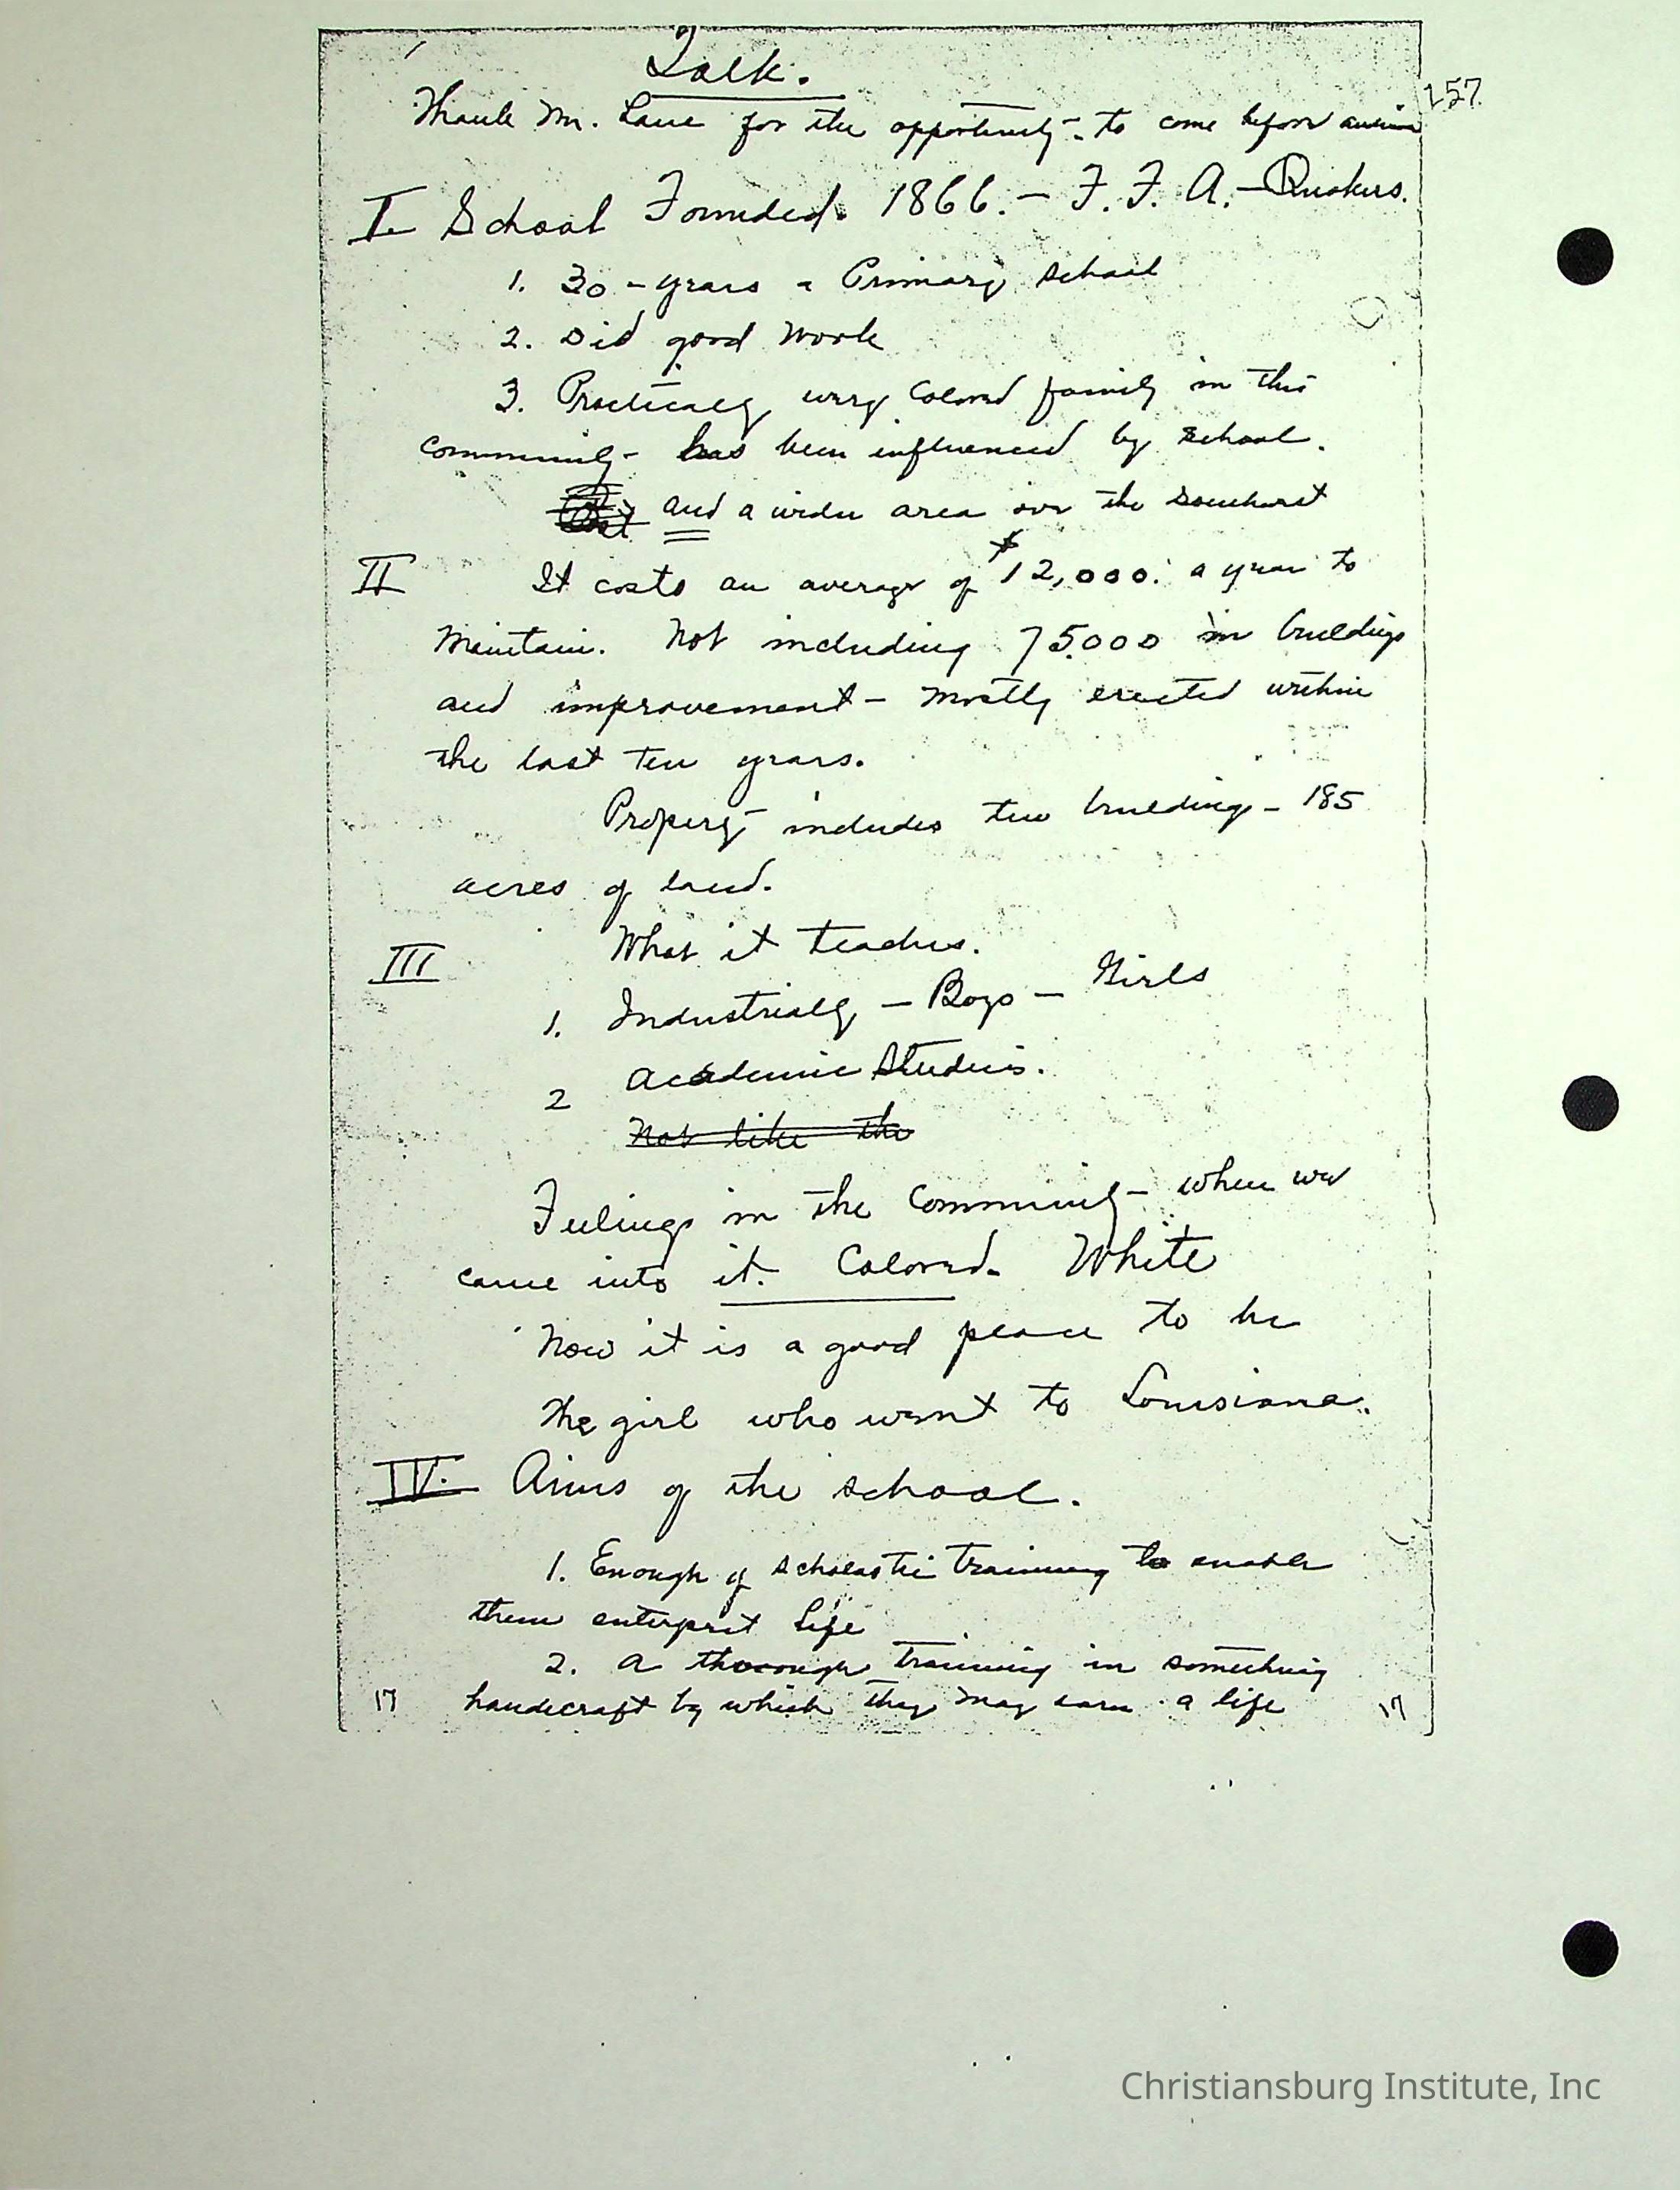 Talk.
257.
Thank Mr. Lane for the opportunity - to come before
I. School Founded. 1866. - F. F. A. - Quakers.
1. 30 - years a Primary school
2. Did good work
3. Practically every Colored family in this
community - has been influenced by school.
and a wider area over the southwest
II It costs an average of $12,000. a year to
maintain. Not including 75.000 in buildings
and improvement - mostly erected within
the last ten years.
Property includes ten buildings - 185
acres of land.
III What it teaches.
1. Industrially - Boys - Girls
2 Academic Studies.
Not like the
Feelings in the community - when we
came into it. Colored. White
Now it is a good place to be
The girl who went to Louisiana.
IV. Aims of the school.
1. Enough of scholastic training to enable
them enterpret life
2. A thorough training in something
17 handecraft by which they may earn a life 17
Christiansburg Institute, Inc